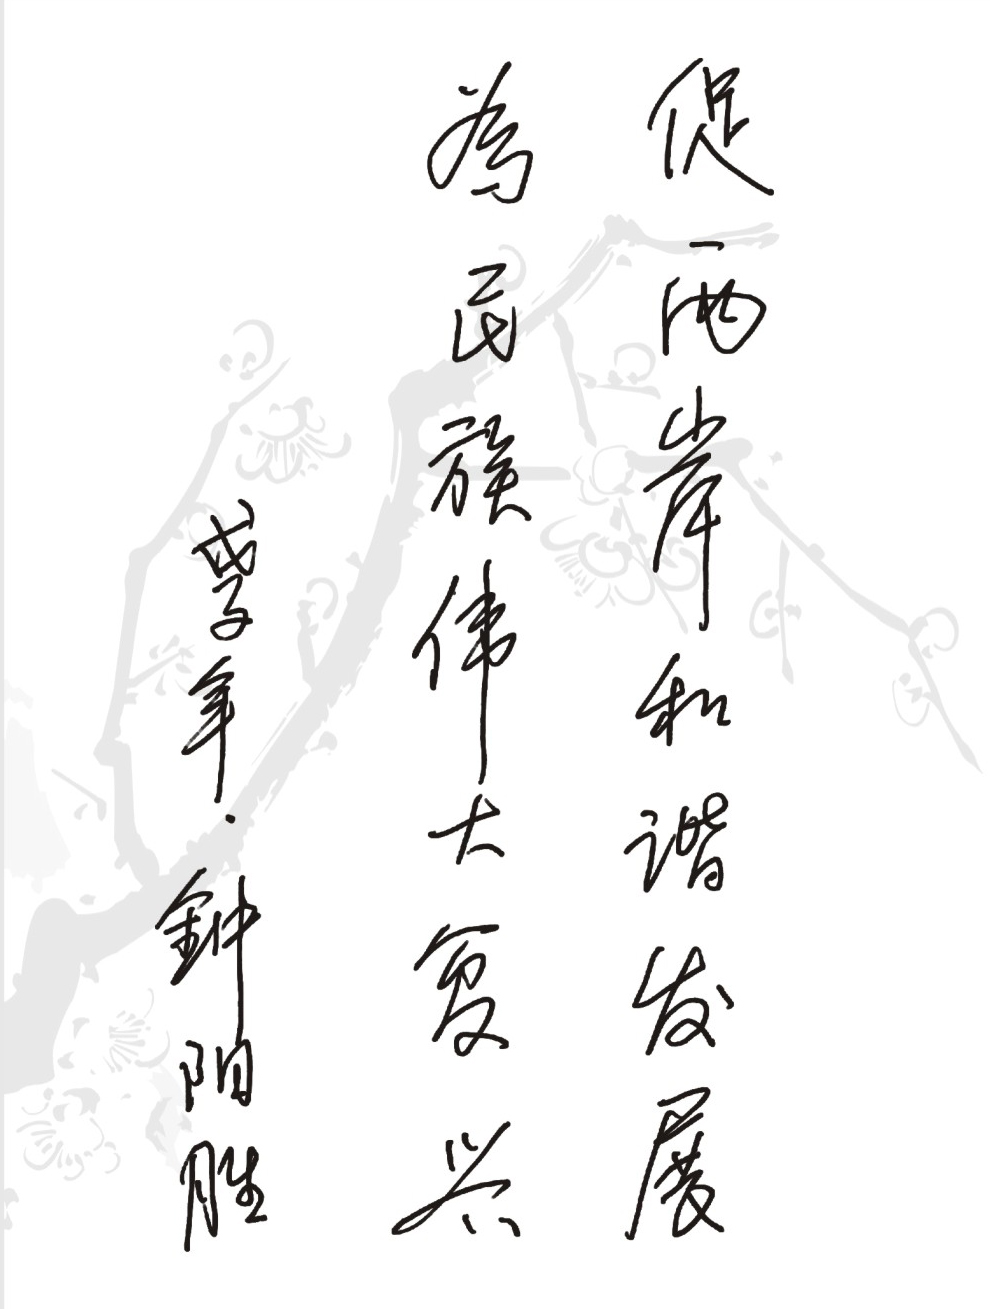 促两岸和谐发展
為民族伟大复兴
戊子年·鈡阳胜